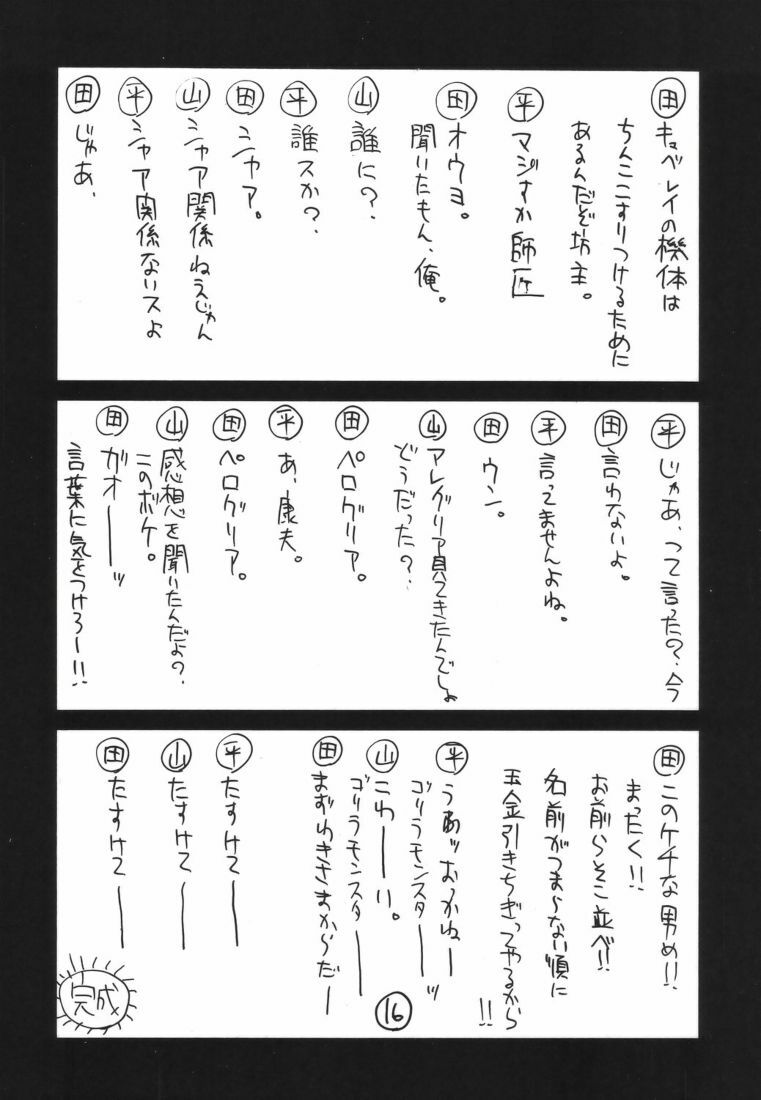 田 キュベレイの機体は
ちんここすりつけるために
あるんだぞ坊主。
平 マジすか師匠
田 オウヨ。
聞いたもん、俺。
山 誰に?
平 誰スか?
田 シャア。
山 シャア関係ねえじゃん
平 シャア関係ないスよ
田 じゃあ、
平 じゃあ、って言った?今
田 言わないよ。
平 言ってませんよね。
田 ウン。
山 アレグリア見てきたんでしょ
どうだった?
田 ペログリア。
平 あ、康夫。
田 ペログリア。
山 感想を聞いたんだよ?
このボケ。
田 ガオーーッ
言葉に気をつけろー!!
田 このケチな男め!!
まったく!!
お前らそこ並べ!!
名前がつまらない順に
玉金引きちぎってやるから!!
平 うあッおっかねー
ゴリラモンスターーッ
山 こわーーい。
ゴリラモンスターー
田 まずわきさまからだー
平 たすけてーー
山 たすけてーー
田 たすけてーー
16
完成